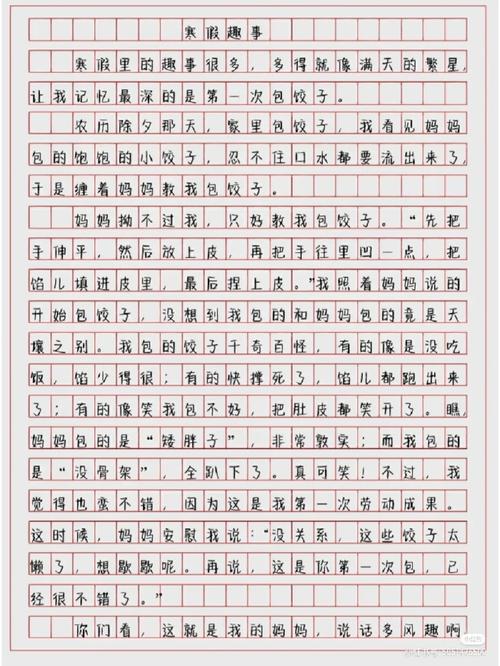 寒假趣事
寒假里的趣事很多，多得就像满天的繁星，
让我记忆最深的是第一次包饺子。
农历除夕那天，家里包饺子，我看见妈妈
包的饱饱的小饺子，忍不住口水都要流出来了，
于是缠着妈妈教我包饺子。
妈妈拗不过我，只好教我包饺子。“先把
手伸平，然后放上皮，再把手往里凹一点，把
馅儿填进皮里，最后捏上皮。”我照着妈妈说的
开始包饺子，没想到我包的和妈妈包的竟是天
壤之别。我包的饺子千奇百怪，有的像是没吃
饭，馅少得很；有的快撑死了，馅儿都跑出来
了；有的像笑我包不好，把肚皮都笑开了。瞧，
妈妈包的是“矮胖子”，非常敦实；而我包的
是“没骨架”，全趴下了。真可笑！不过，我
觉得也蛮不错，因为这是我第一次劳动成果。
这时候，妈妈安慰我说：“没关系，这些饺子太
懒了，想歇歇呢。再说，这是你第一次包，已
经很不错了。”
你们看，这就是我的妈妈，说话多风趣啊
小红书